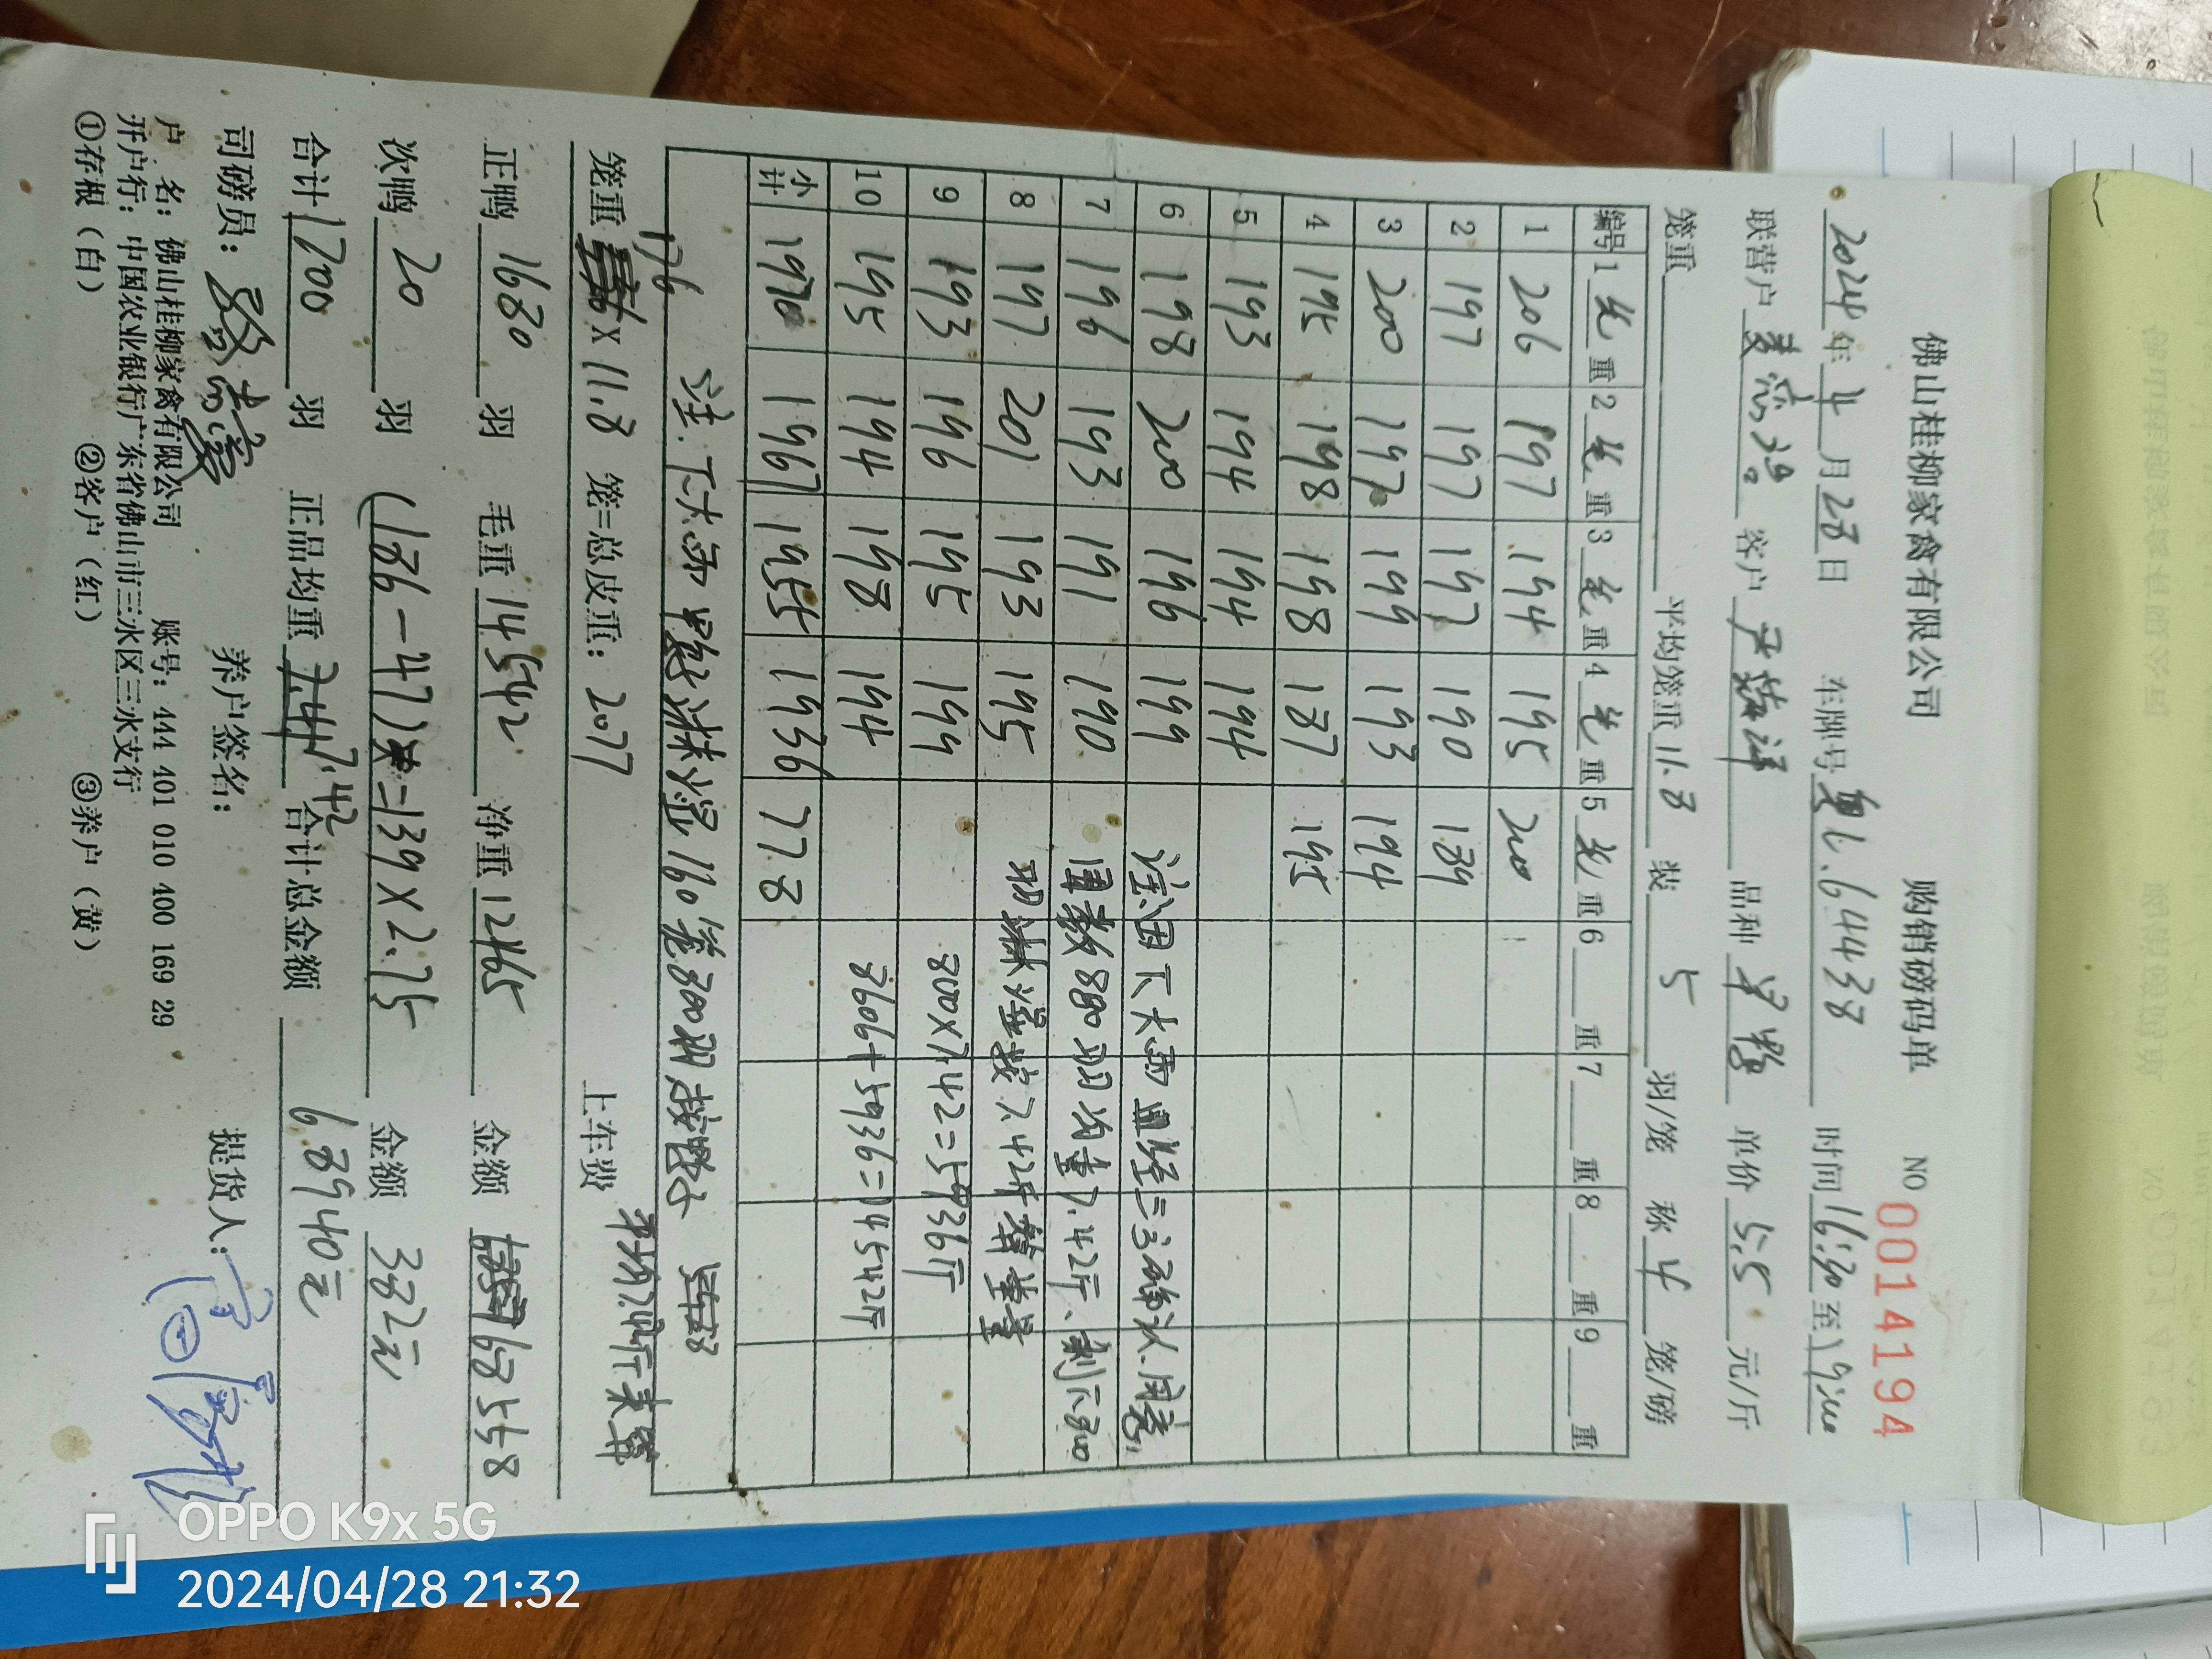 佛山桂柳家禽有限公司 购销磅码单 NO 0014194
2024年4月28日 车牌号 粤L.64438 时间 16:30至19:00
联营户 客户 品种 单价 5.5 元/斤
笼重 平均笼重 11.8 装 5 羽/笼 称 4 笼/磅
编号 1 笼 重 2 笼 重 3 笼 重 4 笼 重 5 笼 重 6 重 7 重 8 重 9 重
1 206 197 194 195 200
2 197 197 197 190 189
3 200 197 199 193 194
4 195 198 198 187 195
5 193 194 194 194
6 198 200 196 199 注:因下大雨 经三方确认同意,
7 196 193 191 190 围数880羽均重7.42斤、剩下800
8 197 201 193 195 羽淋湿按7.42斤算重量
9 193 196 195 199 800×7.42=5936斤
10 195 194 198 194 8606+5936=14542斤
小计 1970 1967 1955 1936 778
注:下大雨 鸭子淋湿160笼800羽,按鸭子
平均7.42斤来算
笼重 176 × 11.8 笼=总皮重: 2077 上车费
正鸭 1680 羽 毛重 14542 净重 12465 金额 68558
次鸭 20 羽 (186-47)=139×2.75 金额 382元
合计 1700 羽 正品均重 7.42 合计总金额 68940元
司磅员: 养户签名: 提货人:
户 名: 佛山桂柳家禽有限公司 账号: 444 401 010 400 169 29
开户行: 中国农业银行广东省佛山市三水区三水支行
①存根(白) ②客户(红) ③养户(黄)
OPPO K9x 5G
2024/04/28 21:32